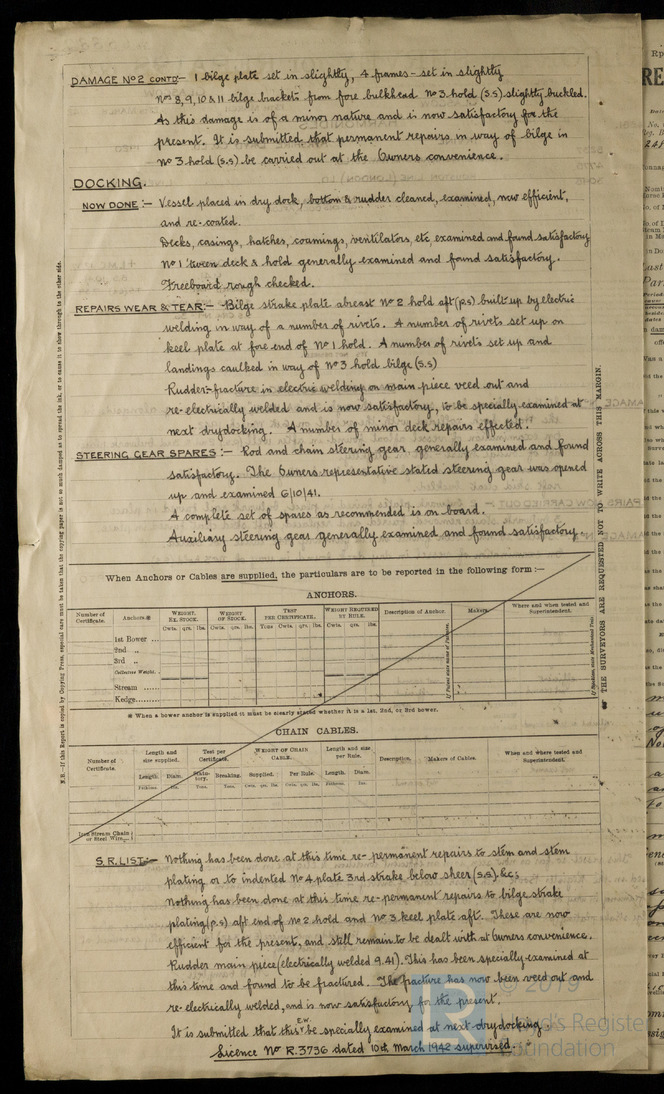 DAMAGE No 2 CONTD:- 1 bilge plate set in slightly, 4 frames - set in slightly
Nos 8, 9, 10 & 11 bilge brackets from fore bulkhead No 3 hold (S.S) slightly buckled.
As this damage is of a minor nature and is now satisfactory for the
present. It is submitted that permanent repairs in way of bilge in
No 3 hold (S.S) be carried out at the Owners convenience.
DOCKING.
NOW DONE:- Vessel placed in dry dock, bottom & rudder cleaned, examined, now efficient,
and re-coated.
Decks, casings, hatches, coamings, ventilators, etc examined and found satisfactory
No 1 'tween deck & hold generally examined and found satisfactory.
Freeboard rough checked.
REPAIRS WEAR & TEAR:- Bilge strake plate abreast No 2 hold aft (P.S) built up by electric
welding in way of a number of rivets. A number of rivets set up on
keel plate at fore end of No 1 hold. A number of rivets set up and
landings caulked in way of No 3 hold bilge (S.S)
Rudder:- fracture in electric welding on main piece veed out and
re-electrically welded and is now satisfactory, to be specially examined at
next drydocking. A number of minor deck repairs effected.
STEERING GEAR SPARES:- Rod and chain steering gear generally examined and found
satisfactory. The Owners representative stated steering gear was opened
up and examined 6/10/41.
A complete set of spares as recommended is on board.
Auxiliary steering gear generally examined and found satisfactory.
When Anchors or Cables are supplied, the particulars are to be reported in the following form:—
ANCHORS.
Number of Certificate. Anchors.* WEIGHT. EX. STOCK. WEIGHT OF STOCK. TEST PER CERTIFICATE. WEIGHT REQUIRED BY RULE. Description of Anchor. Makers. Where and when tested and Superintendent.
Cwts. qrs. lbs. Cwts. qrs. lbs. Tons Cwts. qrs. lbs. Cwts. qrs. lbs.
1st Bower ...
2nd „
3rd „
Collective Weight
Stream ......
Kedge......
* When a bower anchor is supplied it must be clearly stated whether it is a 1st, 2nd, or 3rd bower.
CHAIN CABLES.
Number of Certificate. Length and size supplied. Test per Certificate. WEIGHT OF CHAIN CABLE. Length and size per Rule. Description. Makers of Cables. When and where tested and Superintendent.
Length. Diam. Statutory. Breaking. Supplied. Per Rule. Length. Diam.
Fathoms. Ins. Tons. Tons. Cwts. qrs. lbs. Cwts. qrs. lbs. Fathoms. Ins.
Iron Stream Chain or Steel Wire
S.R. LIST:- Nothing has been done at this time re- permanent repairs to stem and stem
plating or to indented No 4 plate 3rd strake below sheer (S.S) &c;
Nothing has been done at this time re-permanent repairs to bilge strake
plating (P.S) aft end of No 2 hold and No 3 keel plate aft. These are now
efficient for the present, and still remain to be dealt with at Owners convenience.
Rudder main piece (electrically welded 9.41). This has been specially examined at
this time and found to be fractured. The fracture has now been veed out and
re-electrically welded, and is now satisfactory for the present.
It is submitted that this E.W. be specially examined at next drydocking
Licence No R.3736 dated 10th March 1942 supervised.
THE SURVEYORS ARE REQUESTED NOT TO WRITE ACROSS THIS MARGIN.
N.B.—If this Report is copied by Copying Press, especial care must be taken that the copying paper is not so much damped as to spread the ink, or to cause it to show through to the other side.
© 2019
Lloyd's Register
Foundation